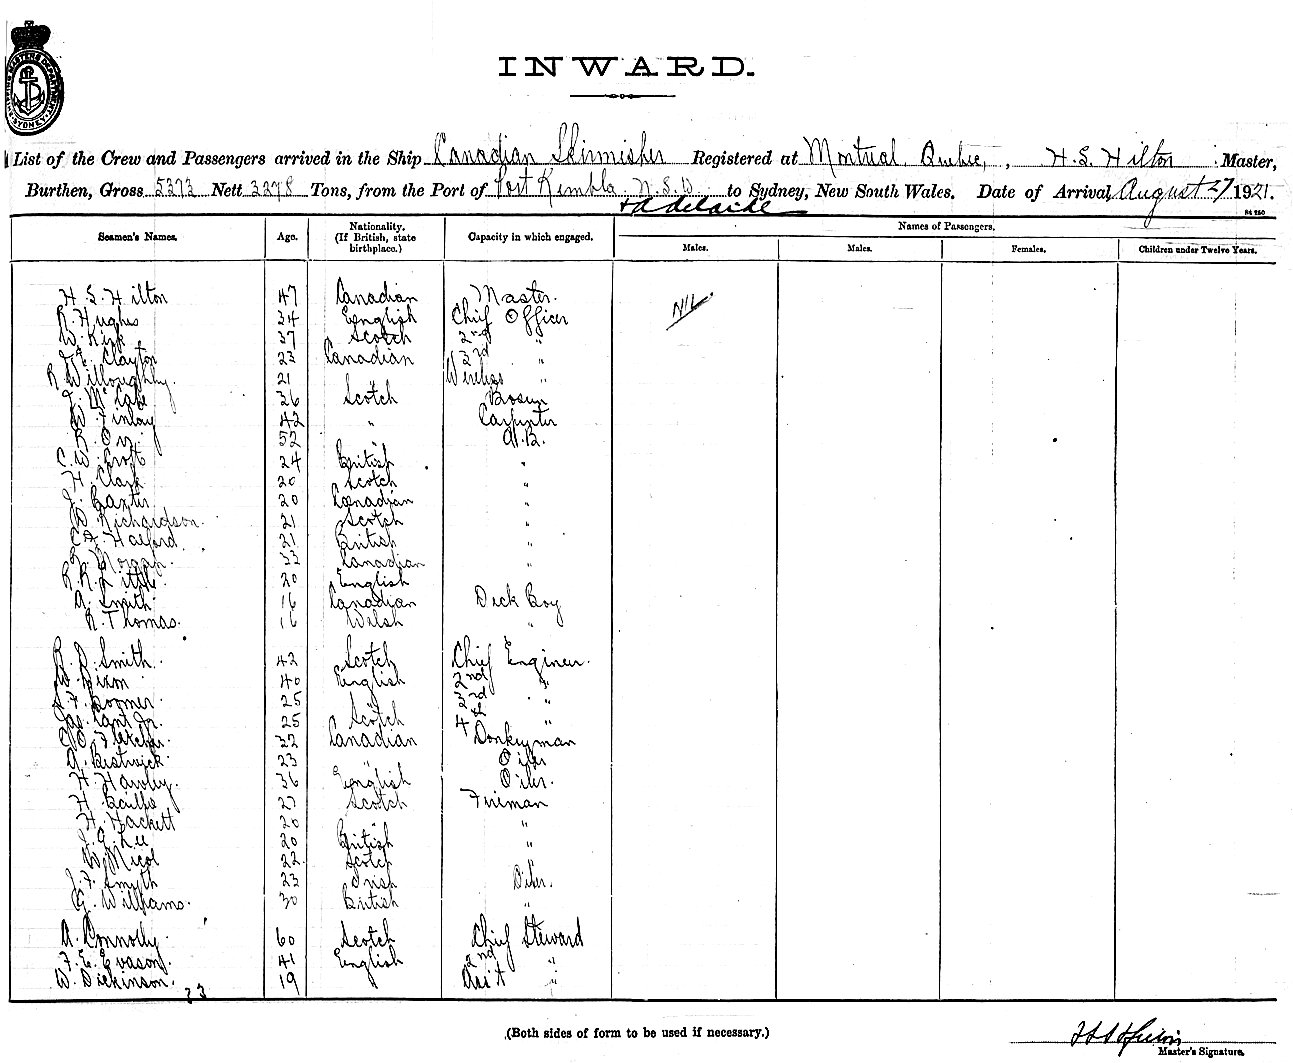 INWARD.
List of the Crew and Passengers arrived in the Ship Canadian Skirmisher Registered at Montreal Quebec, , H. S. Hilton Master,
Burthen, Gross 5373 Nett 3278 Tons, from the Port of Port Kembla N.S.W. to Sydney, New South Wales. Date of Arrival, August 27 1921.
+ Adelaide
Seamen's Names. Age. Nationality. (If British, state birthplace.) Capacity in which engaged. Names of Passengers.
Males. Males. Females. Children under Twelve Years.
H. S. Hilton 47 Canadian Master. Nil
R. Hughes 34 English Chief Officer
W. Kirk 37 Scotch 2nd "
Clayton 23 Canadian 3rd "
R. Willoughby. 21 " Wireless "
J. McCabe 26 Scotch Bosun
W. Finlay 42 " Carpenter
R. Orr 52 A.B.
C. W. Croft 24 British "
H. Clark 20 Scotch "
J. Baxter 20 Canadian "
D. Richardson. 21 Scotch "
Halford. 21 British "
Morgan. 22 Canadian "
R. R. Little. 20 English
A. Smith 16 Canadian Deck Boy
R. Thomas. 16 Welsh "
R. D. Smith. 42 Scotch Chief Engineer.
W. Nixon 40 English 2nd "
F. Boomer. 25 " 3rd "
Cant Jr. 25 Scotch 4th "
Fletcher. 32 Canadian Donkeyman
A. Bestwick. 23 " Oiler
H. Hawley. 36 English Oiler.
H. Baillie 27 Scotch Fireman
H. Hackett 20 " "
J. G. Lee 20 British "
W. Nicol 22 Scotch
J. F. Smyth 23 Irish Oiler.
G. Williams. 30 British "
A. Connolly. 60 Scotch Chief Steward
F. E. Evason. 41 English 2nd "
W. Dickinson. 19 " Asst "
33
(Both sides of form to be used if necessary.)
Master's Signature.